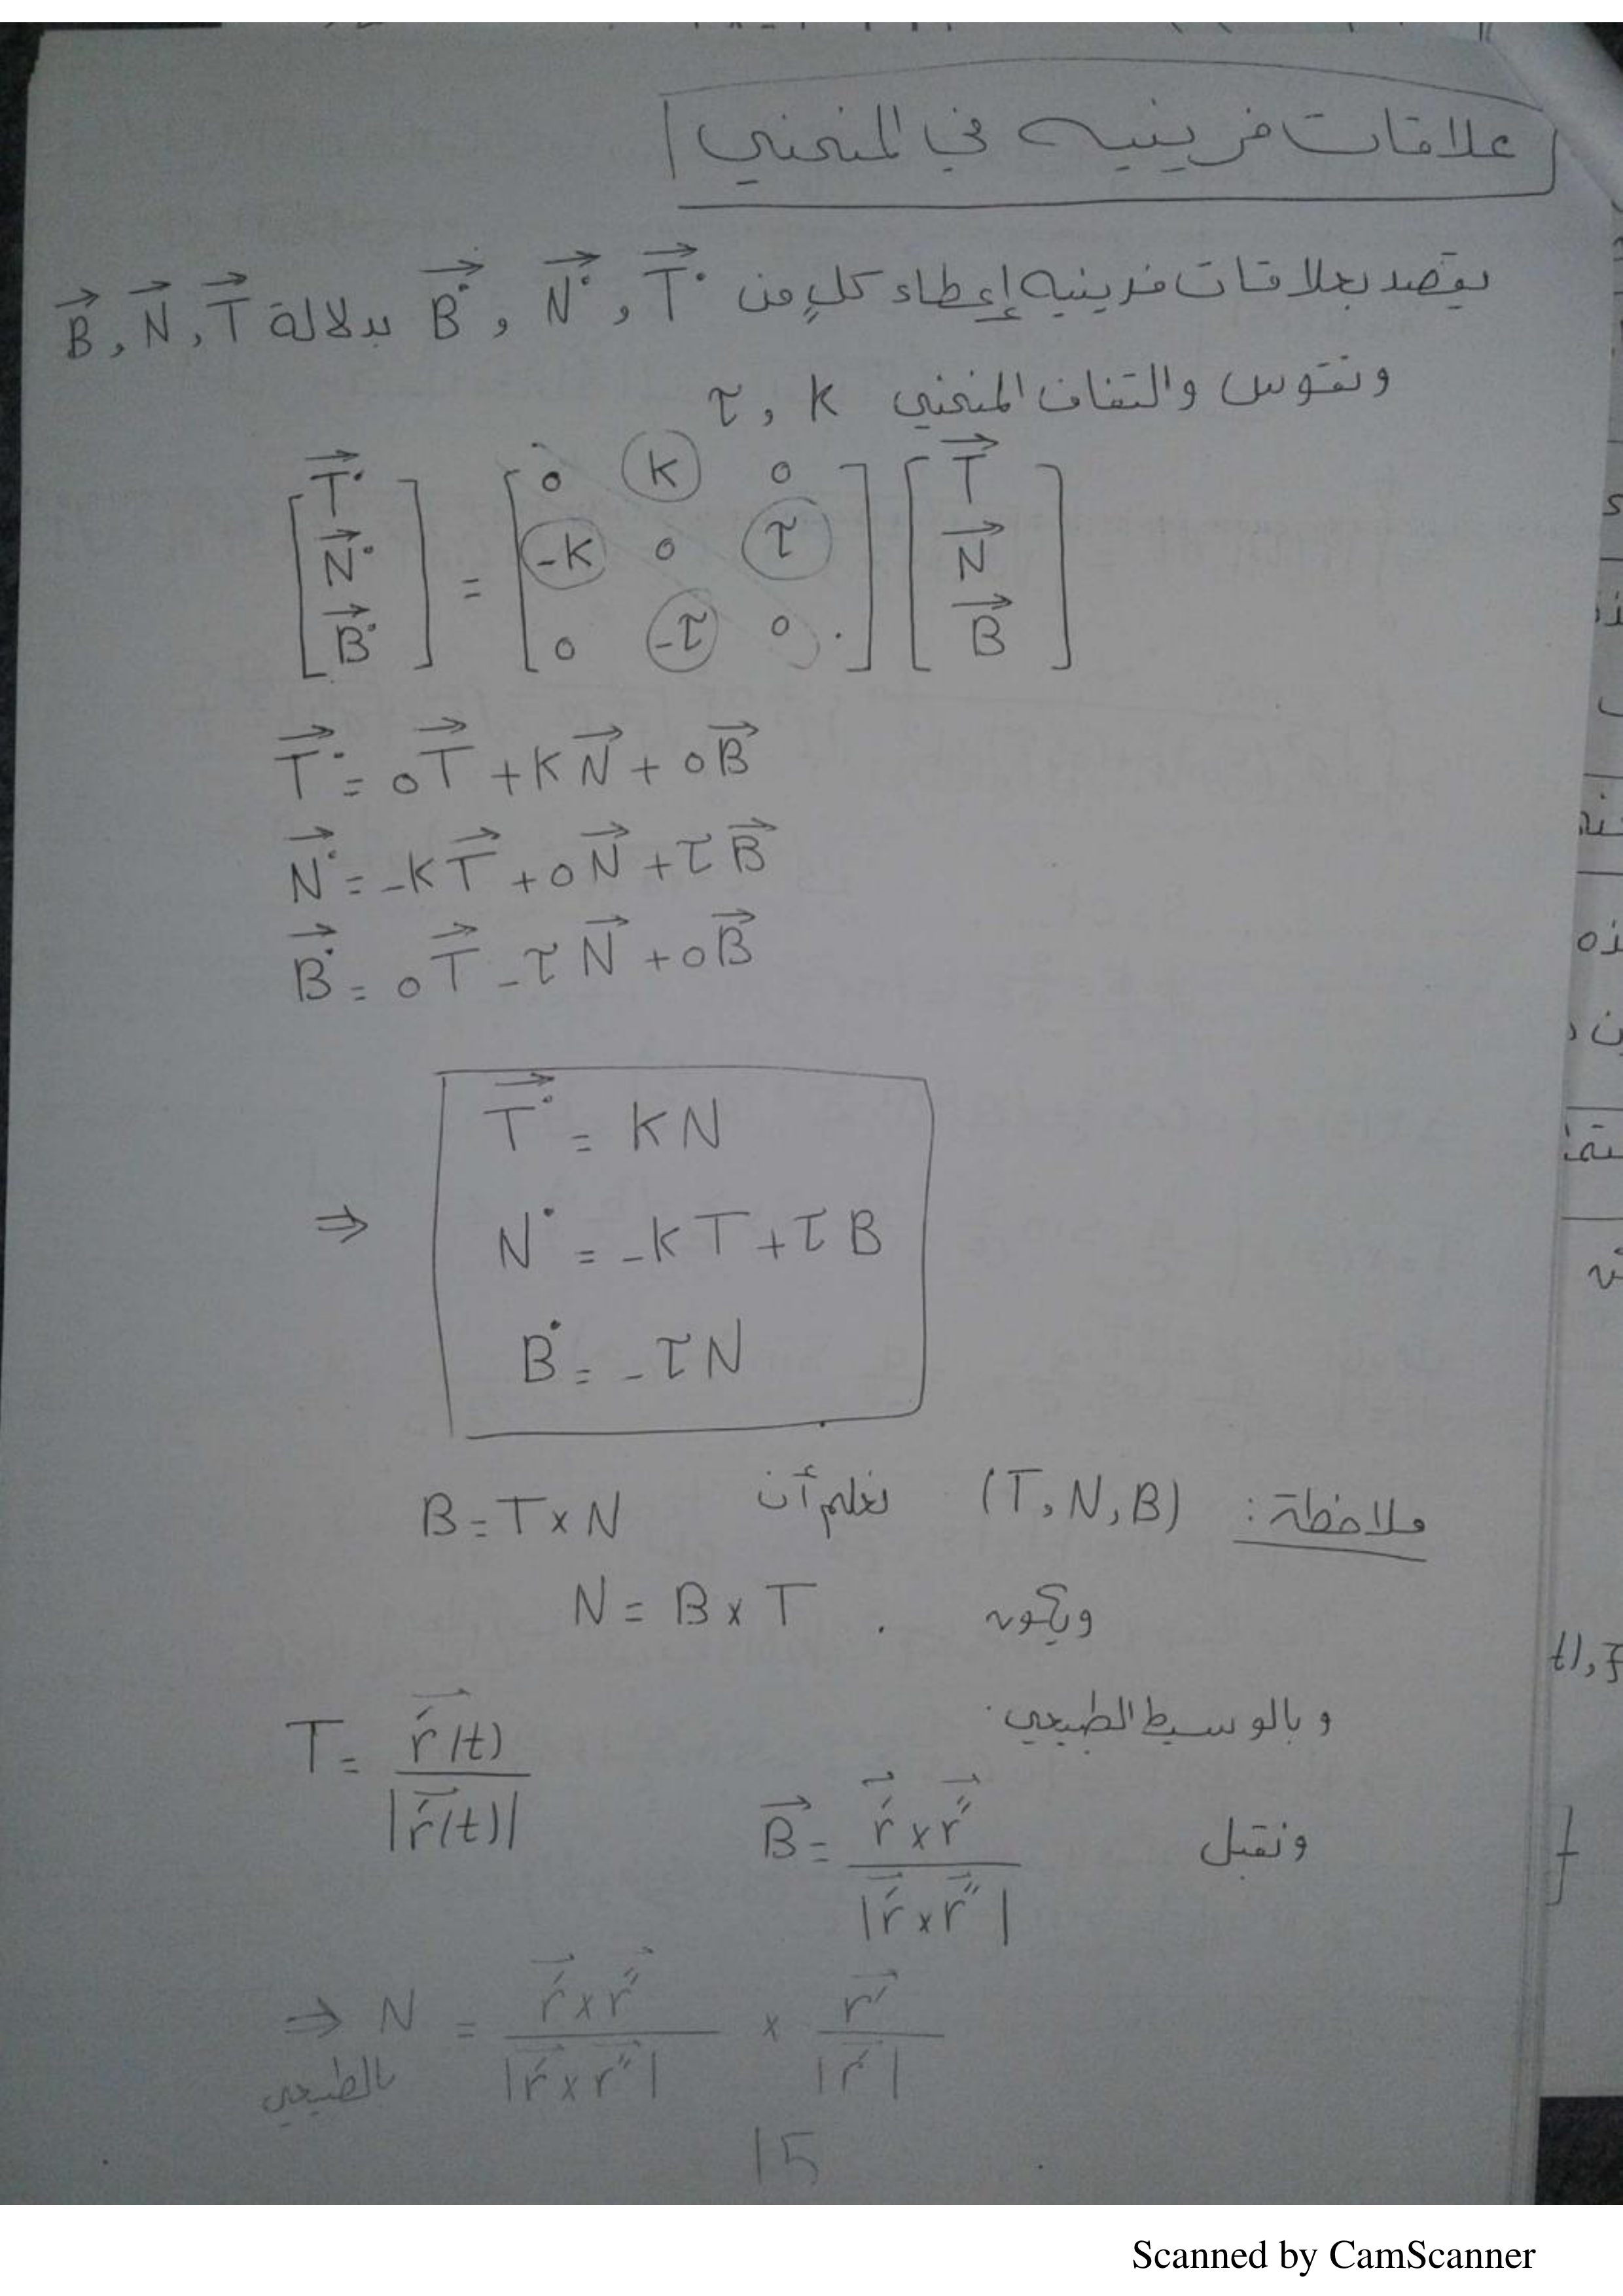 علاقات فرينيه في المنحني
يقصد بعلاقات فرينيه إعطاء كلٍ من T⃗˙ , N⃗˙ , B⃗˙ بدلالة T⃗ , N⃗ , B⃗
وتقوس والتفاف المنحني K , τ
[T⃗˙ N⃗˙ B⃗˙] = [0 K 0 ; -K 0 τ ; 0 -τ 0] [T⃗ N⃗ B⃗]
T⃗˙ = 0T⃗ + KN⃗ + 0B⃗
N⃗˙ = -KT⃗ + 0N⃗ + τB⃗
B⃗˙ = 0T⃗ - τN⃗ + 0B⃗
T⃗˙ = KN
⇒ N˙ = -KT + τB
B˙ = -τN
ملاحظة: (T, N, B) نعلم أن B = T × N
ويكون . N = B × T
وبالوسيط الطبيعي
T = r⃗′(t) / |r⃗′(t)|
ونقبل B⃗ = r⃗′ × r⃗″ / |r⃗′ × r⃗″|
⇒ N = r⃗′ × r⃗″ / |r⃗′ × r⃗″| × r⃗′ / |r⃗′|
بالطبيعي
15
Scanned by CamScanner